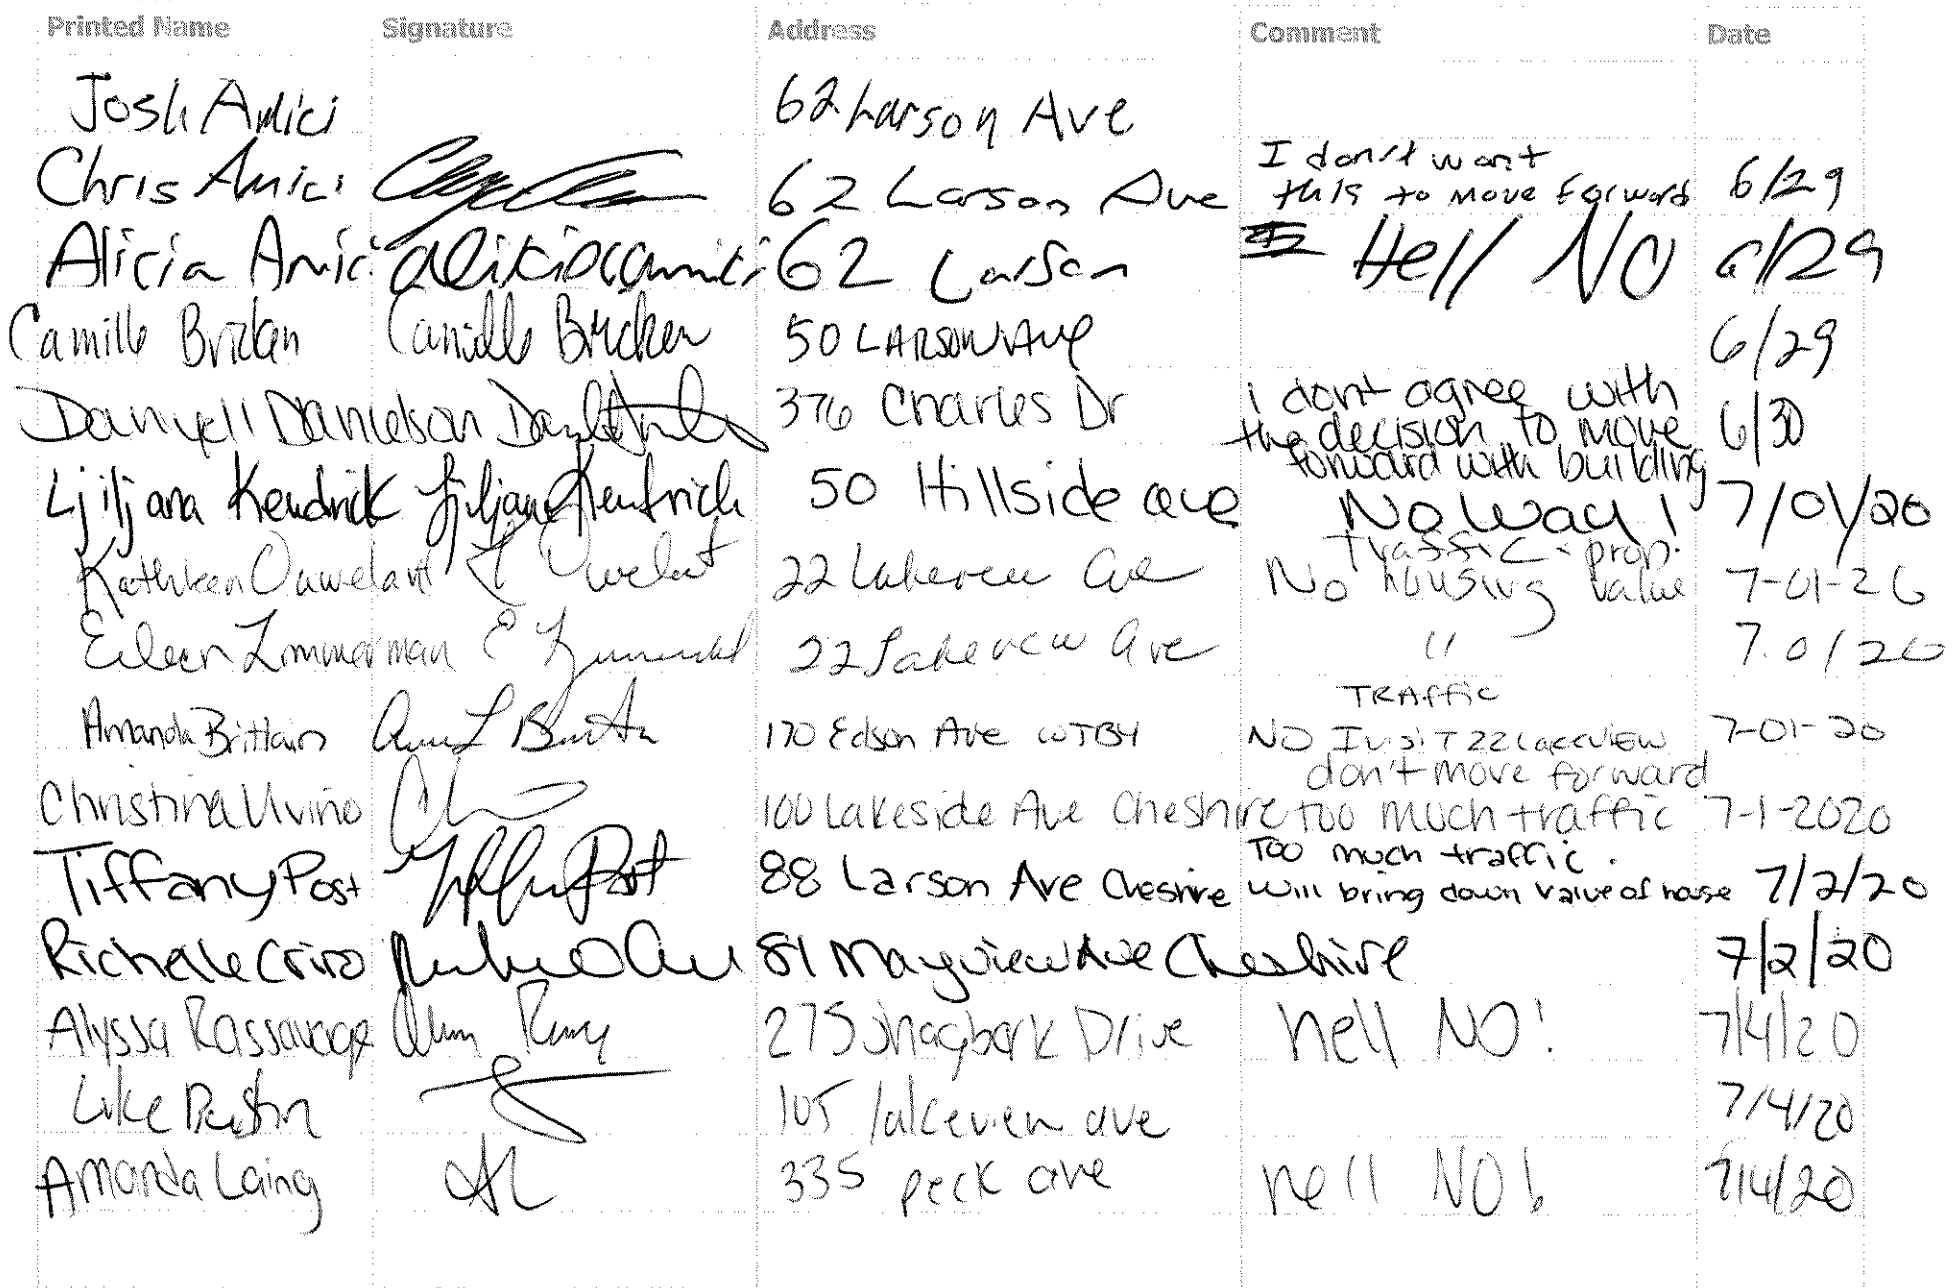 Printed Name Signature Address Comment Date
Josh Amici 62 Larson Ave
Chris Amici 62 Larson Ave I don't want this to move forward 6/29
Alicia Amici aliciaamici 62 Larson Hell NO 6/29
Camille Bricken Camille Bricken 50 LARSON Ave 6/29
Danyell Danielson 376 Charles Dr i dont agree with the decision to move forward with building 6/30
Ljiljana Kendrick Ljiljana Kendrick 50 Hillside ave No Way! 7/01/20
Kathleen 22 Lakeview Ave No traffic prop. housing value 7-01-20
Eileen Zimmerman E Zimmerman 22 Lakeview Ave " 7.01 20
Amanda Brittain 170 Edson Ave WTBY TRAffic NO I visit 22 Lakeview 7-01-20
Christina Uvino 100 Lakeside Ave Cheshire don't move forward too much traffic 7-1-2020
Tiffany Post 88 Larson Ave Cheshire Too much traffic. Will bring down value of house 7/2/20
Richelle 81 Mayview Ave Cheshire 7/2/20
Alyssa 275 Shagbark Drive hell NO! 7/4/20
Luke 105 lakeview ave 7/4/20
Amanda Laing AL 335 peck ave hell NO! 7/4/20